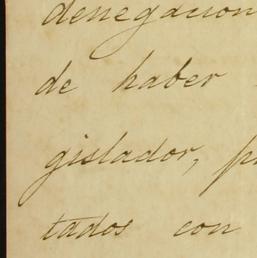 denegacion
de haber
gislador, p
tados con